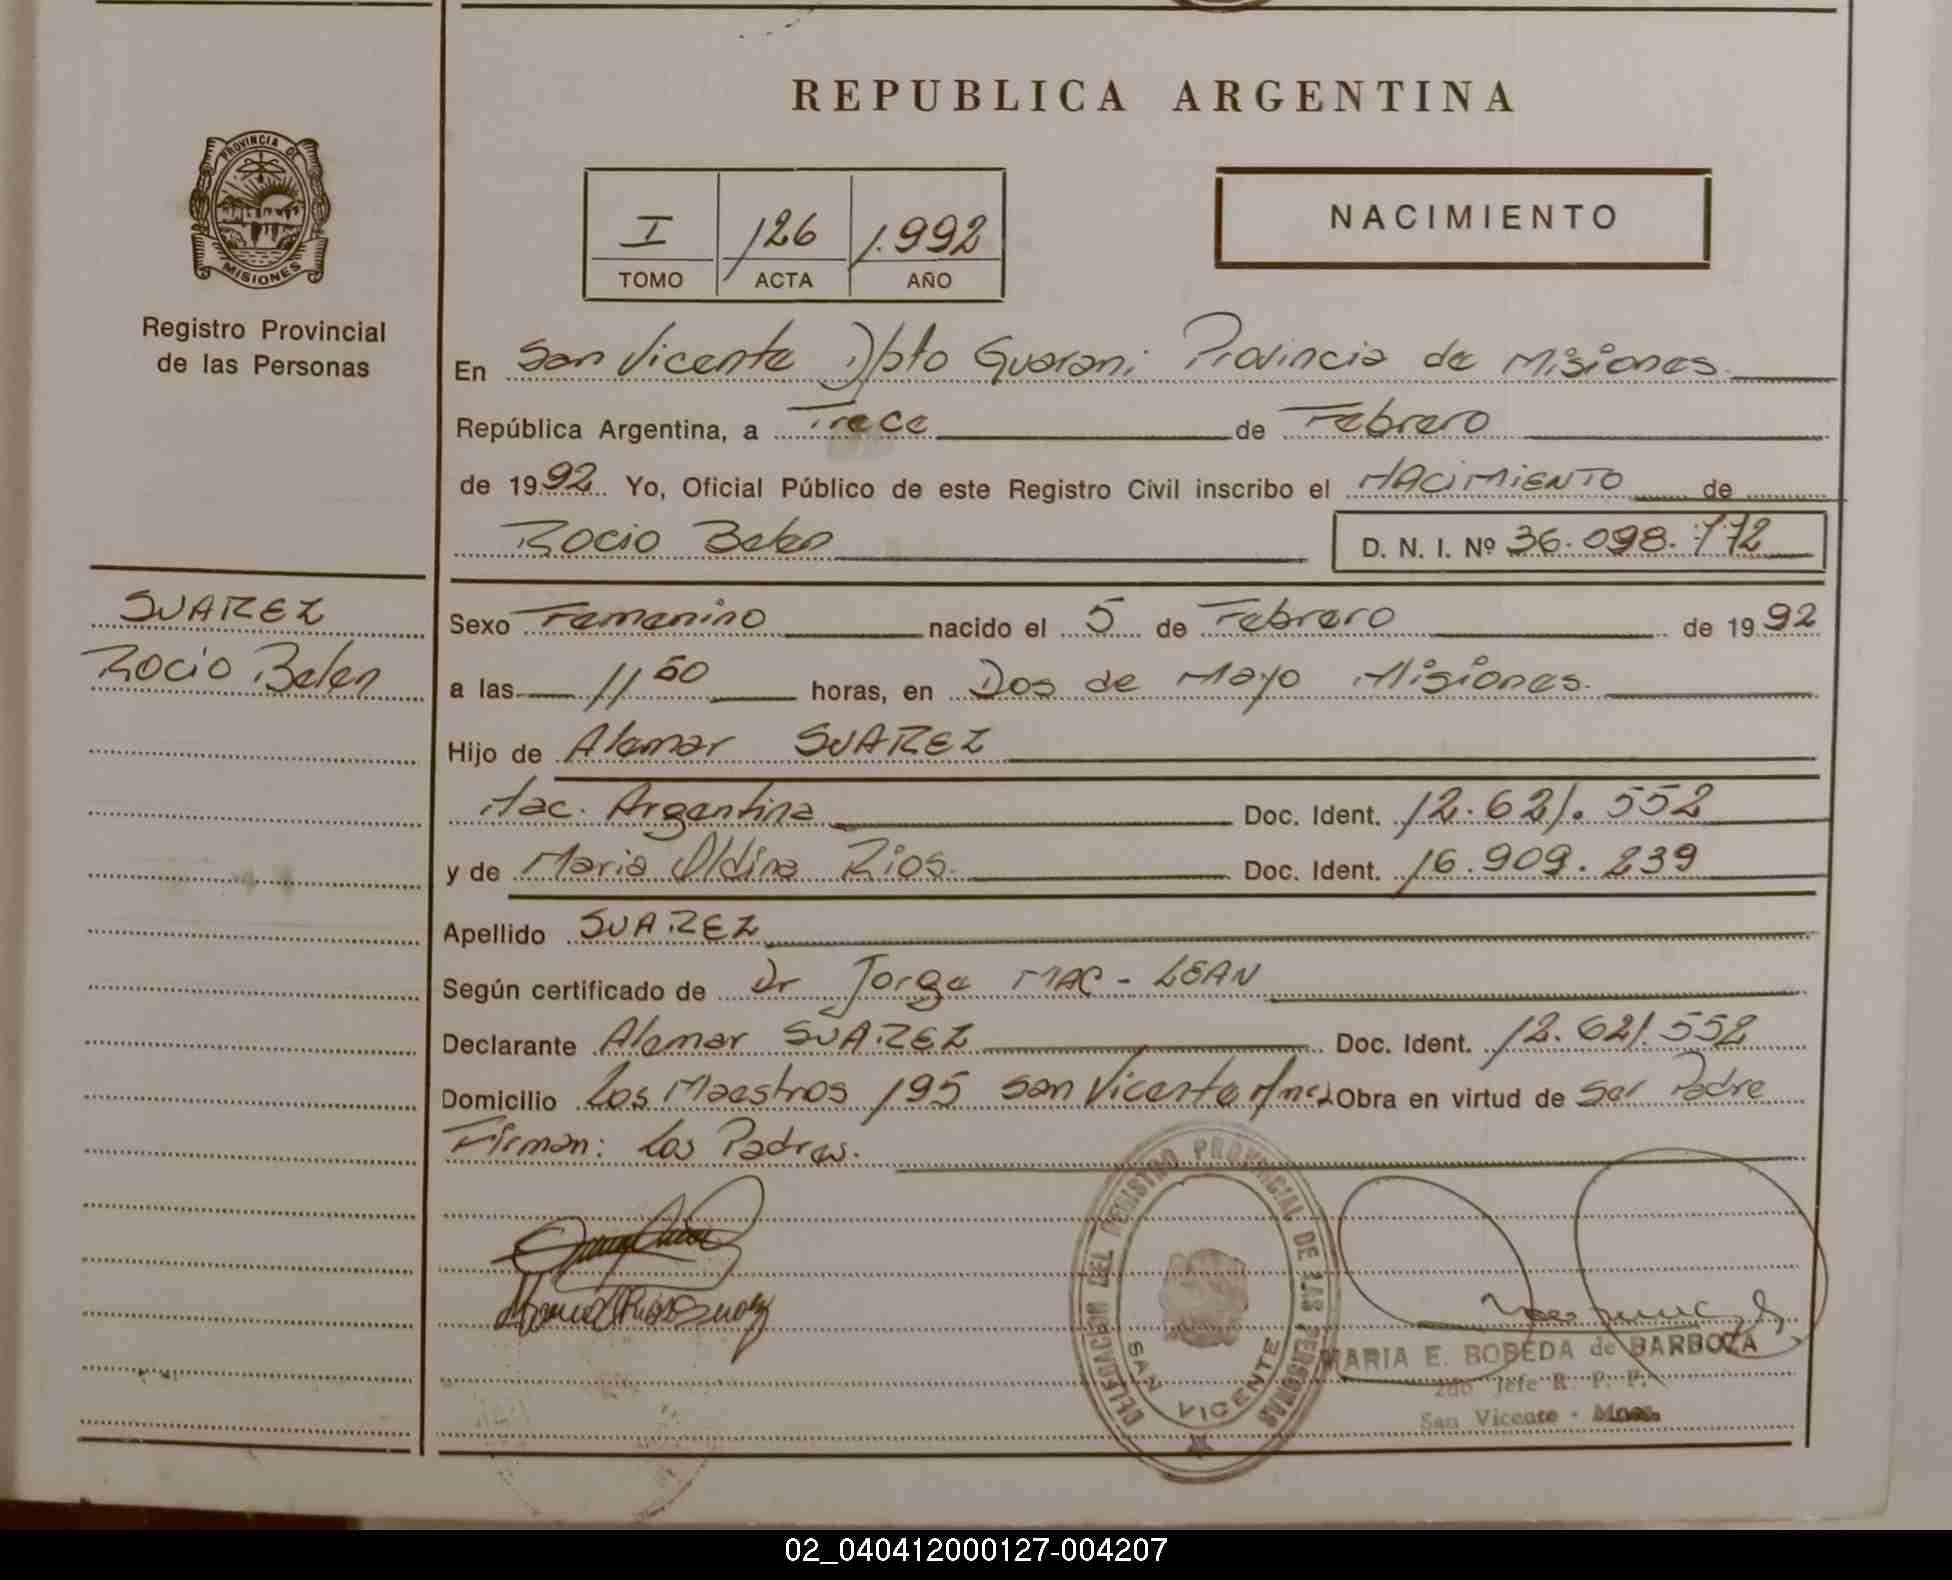 REPUBLICA ARGENTINA
PROVINCIA DE
MISIONES
Registro Provincial
de las Personas
I /126 1.992
TOMO ACTA AÑO
NACIMIENTO
En San Vicente D/pto Guarani Provincia de Misiones.
República Argentina, a Trece de Febrero
de 1992. Yo, Oficial Público de este Registro Civil inscribo el NACIMIENTO de
Rocio Belen D. N. I. Nº 36.098.772
SUAREZ
Rocio Belen
Sexo Femenino nacido el 5 de Febrero de 1992
a las 11 50 horas, en Dos de Mayo Misiones.
Hijo de Alemar SUAREZ
Nac. Argentina Doc. Ident. 12.621.552
y de Maria Oldina Rios. Doc. Ident. 16.909.239
Apellido SUAREZ
Según certificado de Dr Jorge MAC-LEAN
Declarante Alemar SUAREZ Doc. Ident. 12.621.552
Domicilio Los Maestros 195 San Vicente Mnes Obra en virtud de Ser Padre
Firman: Los Padres.
DELEGACION DEL REGISTRO PROVINCIAL DE LAS PERSONAS
SAN VICENTE
MARIA E. BOBEDA de BARBOZA
2do Jefe R. P. P.
San Vicente - Mnes.
02_040412000127-004207